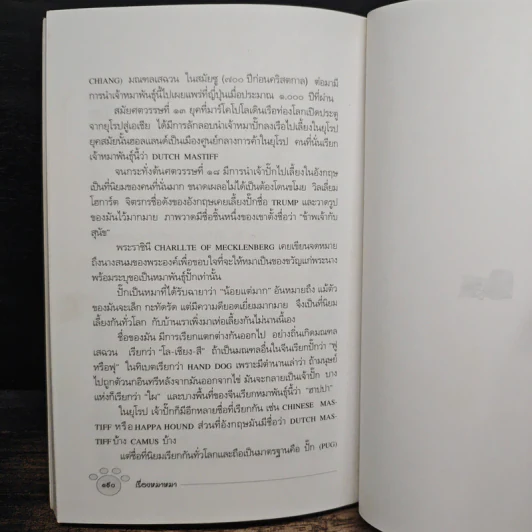 CHIANG) มณฑลเสฉวน ในสมัยซู (๗๐๐ ปีก่อนคริสตกาล) ต่อมามี
การนำเจ้าหมาพันธุ์นี้ไปเผยแพร่ที่ญี่ปุ่นเมื่อประมาณ ๑,๐๐๐ ปีที่ผ่าน
สมัยศตวรรษที่ ๑๓ ยุคที่มาร์โคโปโลเดินเรือท่องโลกเปิดประตู
จากยุโรปสู่เอเชีย ได้มีการลักลอบนำเจ้าหมาปั๊กลงเรือไปเลี้ยงในยุโรป
ยุคสมัยนั้นฮอลแลนด์เป็นเมืองศูนย์กลางการค้าในยุโรป คนที่นั่นเรียก
เจ้าหมาพันธุ์นี้ว่า DUTCH MASTIFF
จนกระทั่งต้นศตวรรษที่ ๑๘ มีการนำเจ้าปั๊กไปเลี้ยงในอังกฤษ
เป็นที่นิยมของคนที่นั่นมาก ขนาดเผลอไม่ได้เป็นต้องโดนขโมย วิลเลี่ยม
โฮการ์ต จิตรกรชื่อดังของอังกฤษเคยเลี้ยงปั๊กชื่อ TRUMP และวาดรูป
ของมันไว้มากมาย ภาพวาดมีชื่อชิ้นหนึ่งของเขาตั้งชื่อว่า "ข้าพเจ้ากับ
สุนัข"
พระราชินี CHARLLTE OF MECKLENBERG เคยเขียนจดหมาย
ถึงนางสนมของพระองค์เพื่อขอบใจที่จะให้หมาเป็นของขวัญแก่พระนาง
พร้อมระบุขอเป็นหมาพันธุ์ปั๊กเท่านั้น
ปั๊กเป็นหมาที่ได้รับฉายาว่า "น้อยแต่มาก" อันหมายถึง แม้ตัว
ของมันจะเล็ก กะทัดรัด แต่มีความดียอดเยี่ยมมากมาย จึงเป็นที่นิยม
เลี้ยงกันทั่วโลก กับบ้านเราเพิ่งมาเห่อเลี้ยงกันไม่นานนี้เอง
ชื่อของมัน มีการเรียกแตกต่างกันออกไป อย่างถิ่นเกิดมณฑล
เสฉวน เรียกว่า "โล-เชียง-สี" ถ้าเป็นมณฑลอื่นในจีนเรียกปั๊กว่า "ฟู
หรือฟุ" ในทิเบตเรียกว่า HAND DOG เพราะมีตำนานเล่าว่า ถ้ามนุษย์
ไปถูกตัวก่อนอินทรีหลังจากมันออกจากไข่ มันจะกลายเป็นเจ้าปั๊ก บาง
แห่งก็เรียกว่า "ไผ" และบางพื้นที่ของจีนเรียกหมาพันธุ์นี้ว่า "ฮาปปา"
ในยุโรป เจ้าปั๊กก็มีอีกหลายชื่อที่เรียกกัน เช่น CHINESE MAS-
TIFF หรือ HAPPA HOUND ส่วนที่อังกฤษมันมีชื่อว่า DUTCH MAS-
TIFF บ้าง CAMUS บ้าง
แต่ชื่อที่นิยมเรียกกันทั่วโลกและถือเป็นมาตรฐานคือ ปั๊ก (PUG)
๑๕๐ เรื่องหมาหมา